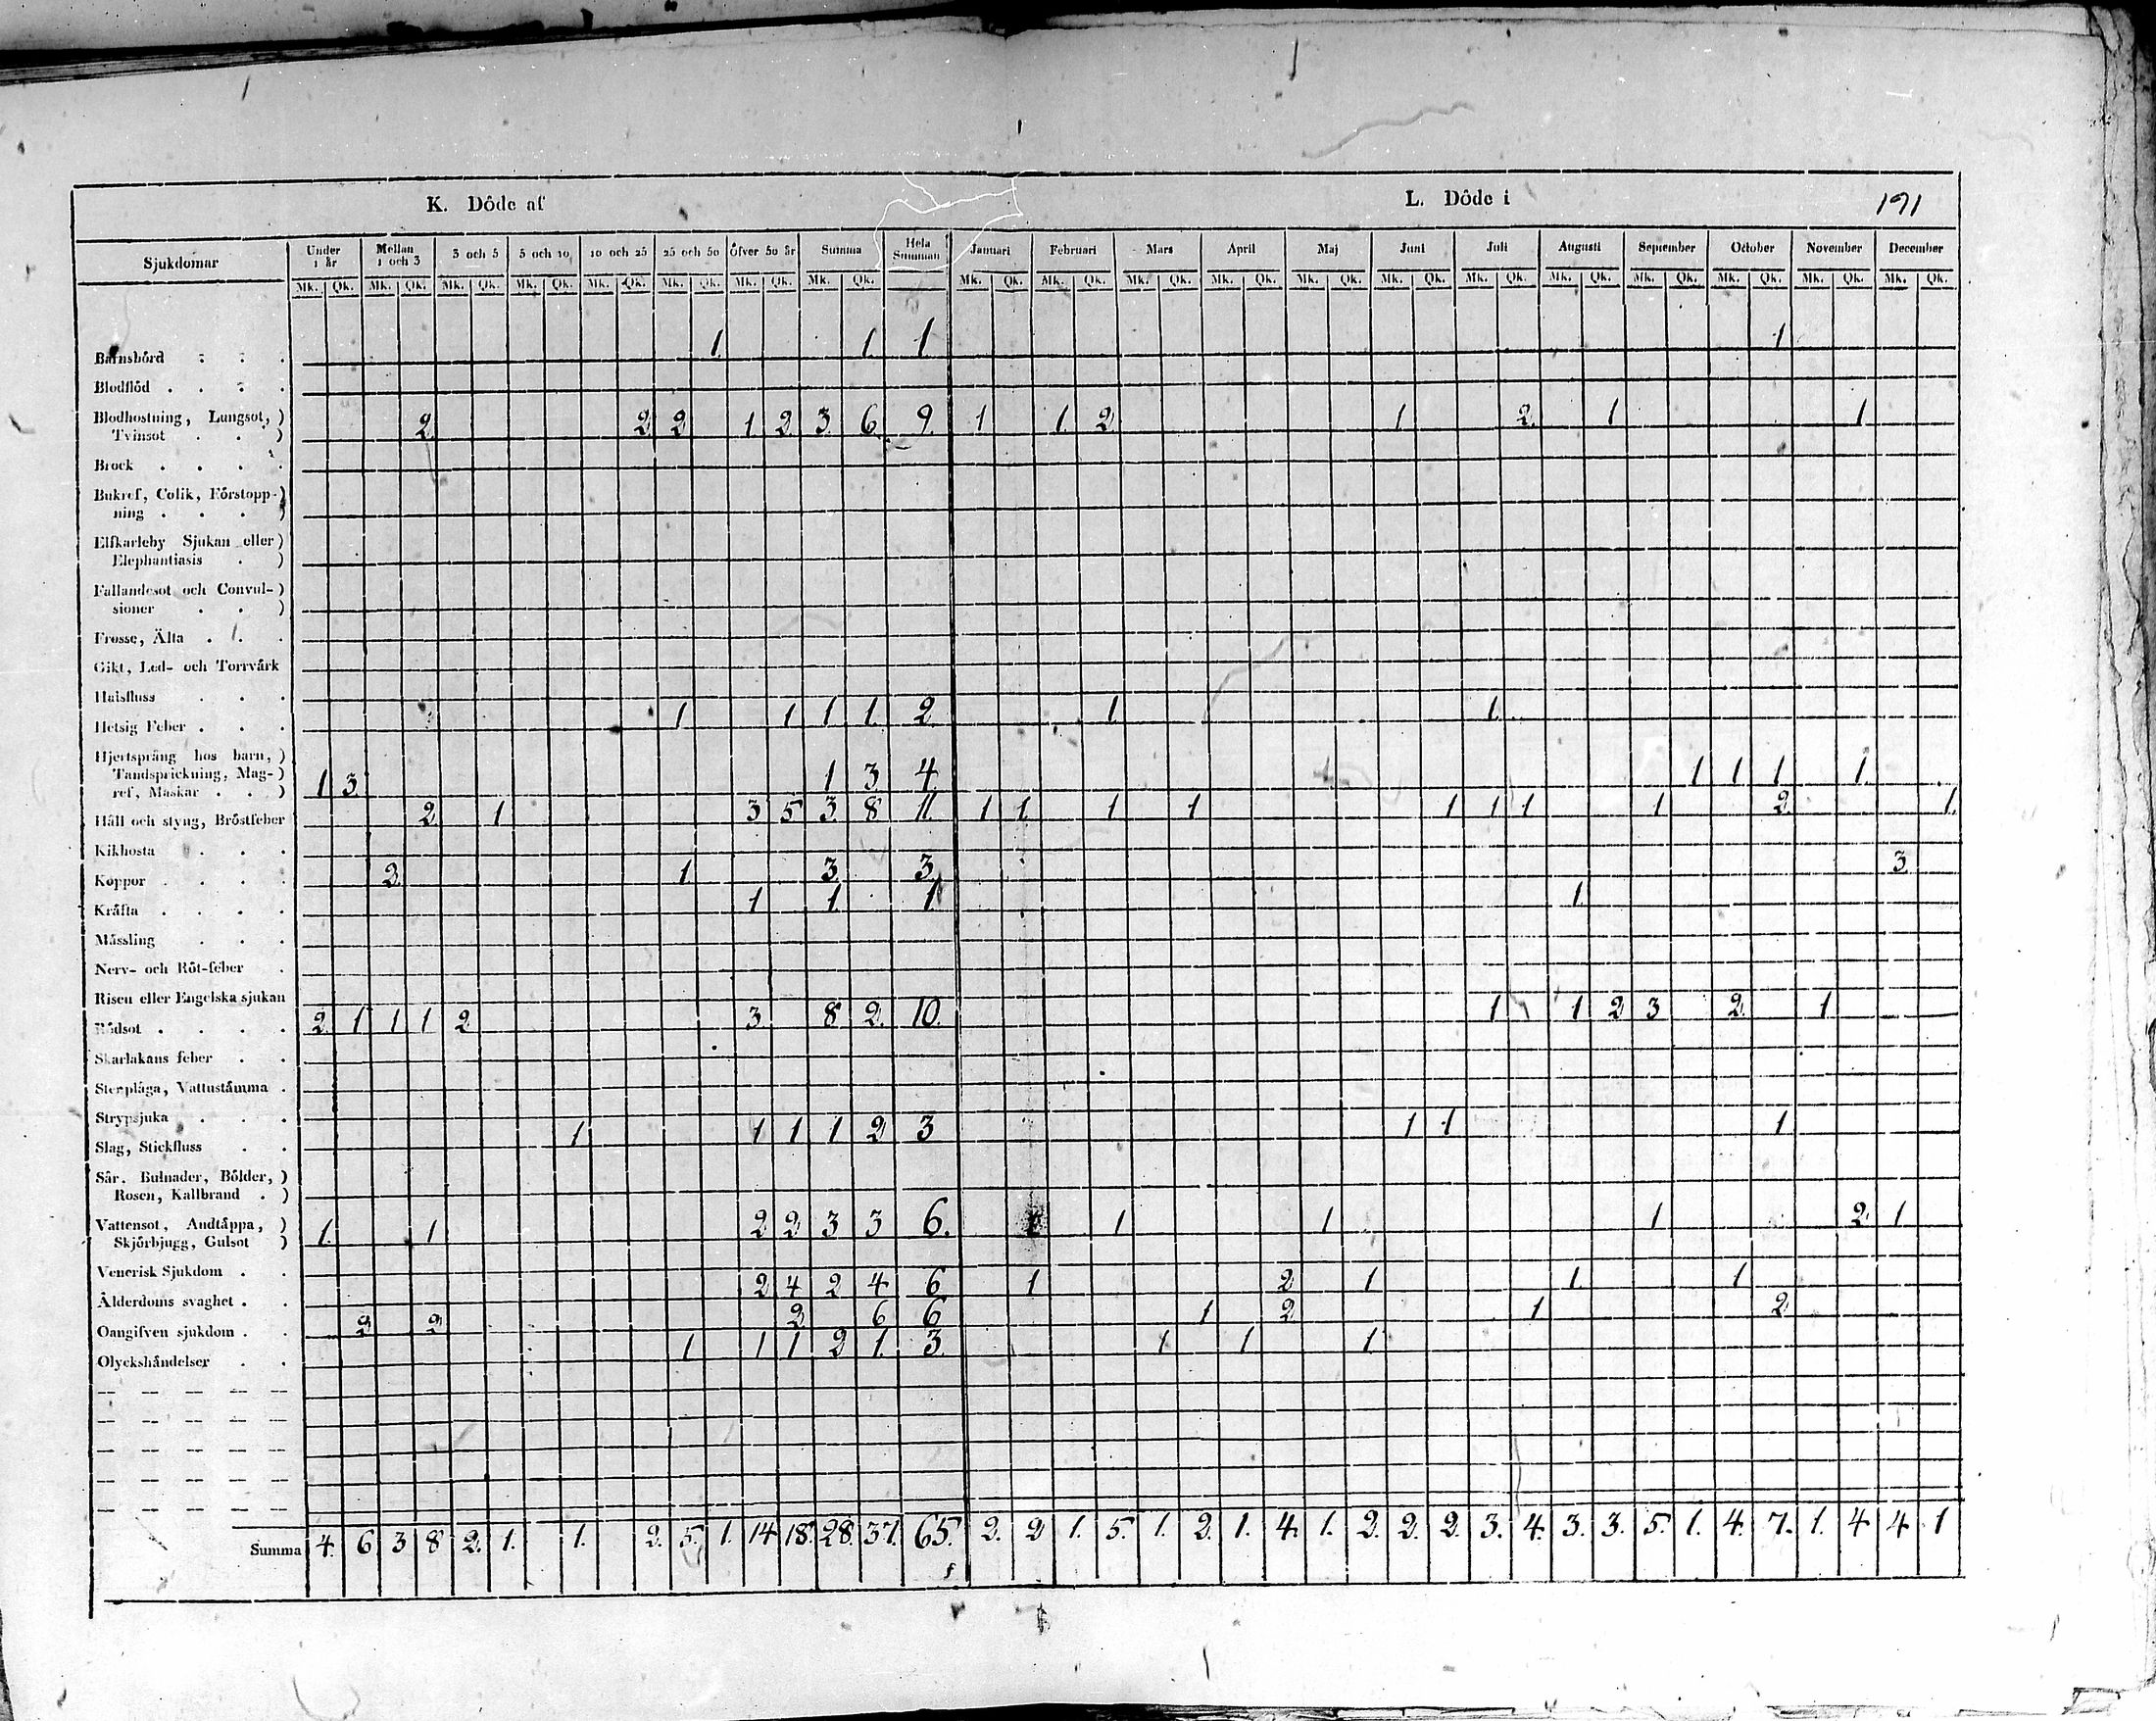 K. Döde af L. Döde i 191
Sjukdomar Under 1 år Mellan 1 och 3 3 och 5 5 och 10 10 och 25 25 och 50 Öfver 50 år Summa Hela Summan Januari Februari Mars April Maj Juni Juli Augusti September October November December
Mk. Qk. Mk. Qk. Mk. Qk. Mk. Qk. Mk. Qk. Mk. Qk. Mk. Qk. Mk. Qk. Mk. Qk. Mk. Qk. Mk. Qk. Mk. Qk. Mk. Qk. Mk. Qk. Mk. Qk. Mk. Qk. Mk. Qk. Mk. Qk. Mk. Qk. Mk. Qk.
Barnsbörd . . . 1. 1. 1 1
Blodflöd . . . .
Blodhostning, Lungsot, )
Tvinsot . . ) 2 2 2 1 2 3 6 9. 1 1 2 1 2 1 1
Brock . . . .
Bukref, Colik, Förstopp-)
ning . . . )
Elfkarleby Sjukan eller )
Elephantiasis . )
Fallandesot och Convul- )
sioner . . )
Frosse, Älta . . .
Gikt, Led- och Torrvärk
Halsfluss . . .
Hetsig Feber . . . 1 1 1 1. 2 1 1
Hjertspräng hos barn, )
Tandsprickning, Mag- )
ref, Maskar . . ) 1 3 1 3 4. 1 1 1 1.
Håll och styng, Bröstfeber 2 1 3 5 3 8 11. 1 1 1 1 1 1 1 1 2 1.
Kikhosta . . .
Koppor . . . . 2 1. 3 3 3
Kräfta . . . . 1 1. 1 1
Mässling . . .
Nerv- och Röt-feber .
Risen eller Engelska sjukan
Rödsot . . . . 2 1 1 1 2 3 8 2. 10. 1 1 2 3 2 1
Skarlakans feber . .
Stenplåga, Vattustämma .
Strypsjuka . . .
Slag, Stickfluss . . 1 1 1 1 2 3 1 1 1
Sår, Bulnader, Bölder, )
Rosen, Kallbrand . )
Vattensot, Andtäppa, )
Skjörbjugg, Gulsot ) 1. 1 2 2 3 3 6. 1 1 1 2 1
Venerisk Sjukdom . .
Ålderdoms svaghet . . 2 4 2 4 6 1 2 1 1 1
Oangifven sjukdom . . 2 2 2 6 6 1 2 1 2
Olyckshändelser . . 1 1 1 2 1. 3 1 1 1
-- -- -- -- --
-- -- -- -- --
-- -- -- -- --
-- -- -- -- --
-- -- -- -- --
Summa 4. 6 3 8 2. 1. 1. 2. 5. 1. 14 18. 28. 37. 65. 2. 2 1. 5. 1. 2. 1. 4. 1. 2. 2. 2. 3. 4. 3. 3. 5. 1. 4. 7. 1. 4 4 1